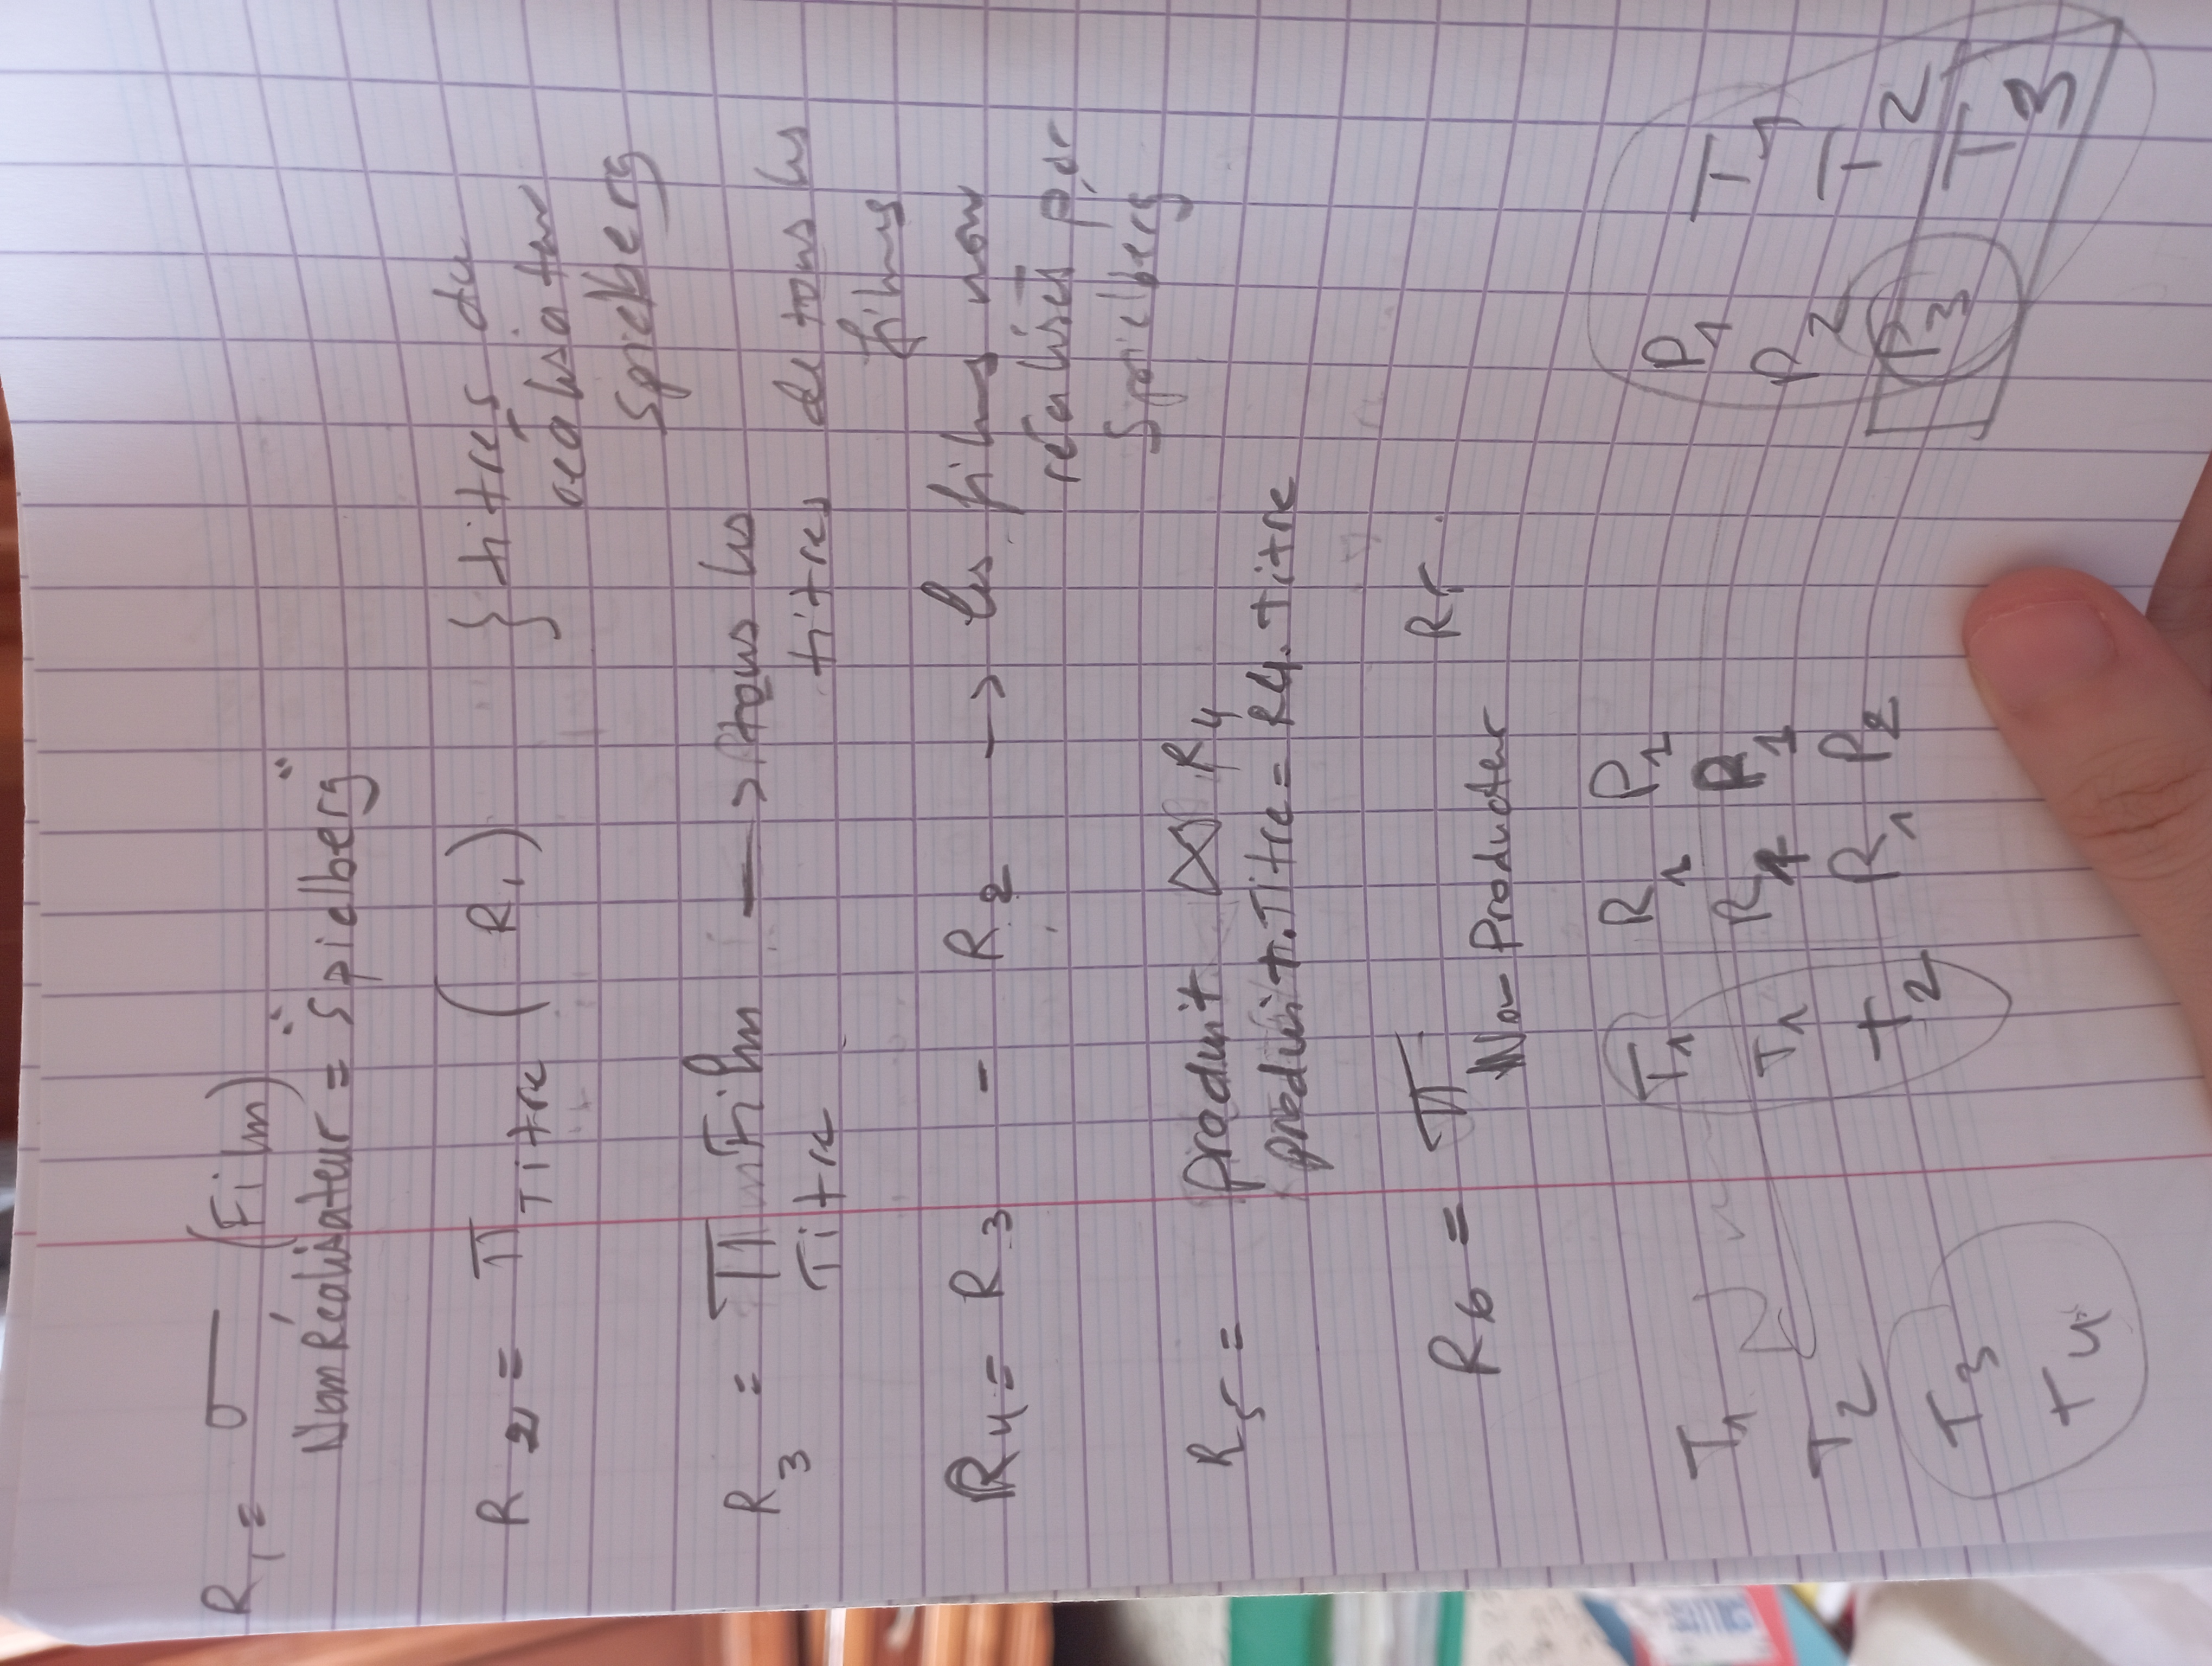 R1 = σ (Film)
NomRéalisateur = "Spielberg"
R2 = π Titre (R1) } titres du
réalisateur
Spielberg
R3 = π Film → tous les
Titre titres de tous les
films
R4 = R3 - R2 → les films non
réalisés par
Spielberg
R5 = produit ⋈ R4
produit.Titre = R4.titre
R6 = π R5
Nom Producteur
T1 R1 P1
T1 P1 T1
T1 R1 P1
T2 P2 T2
T2 R1 P2
T3 P3 T3
T4